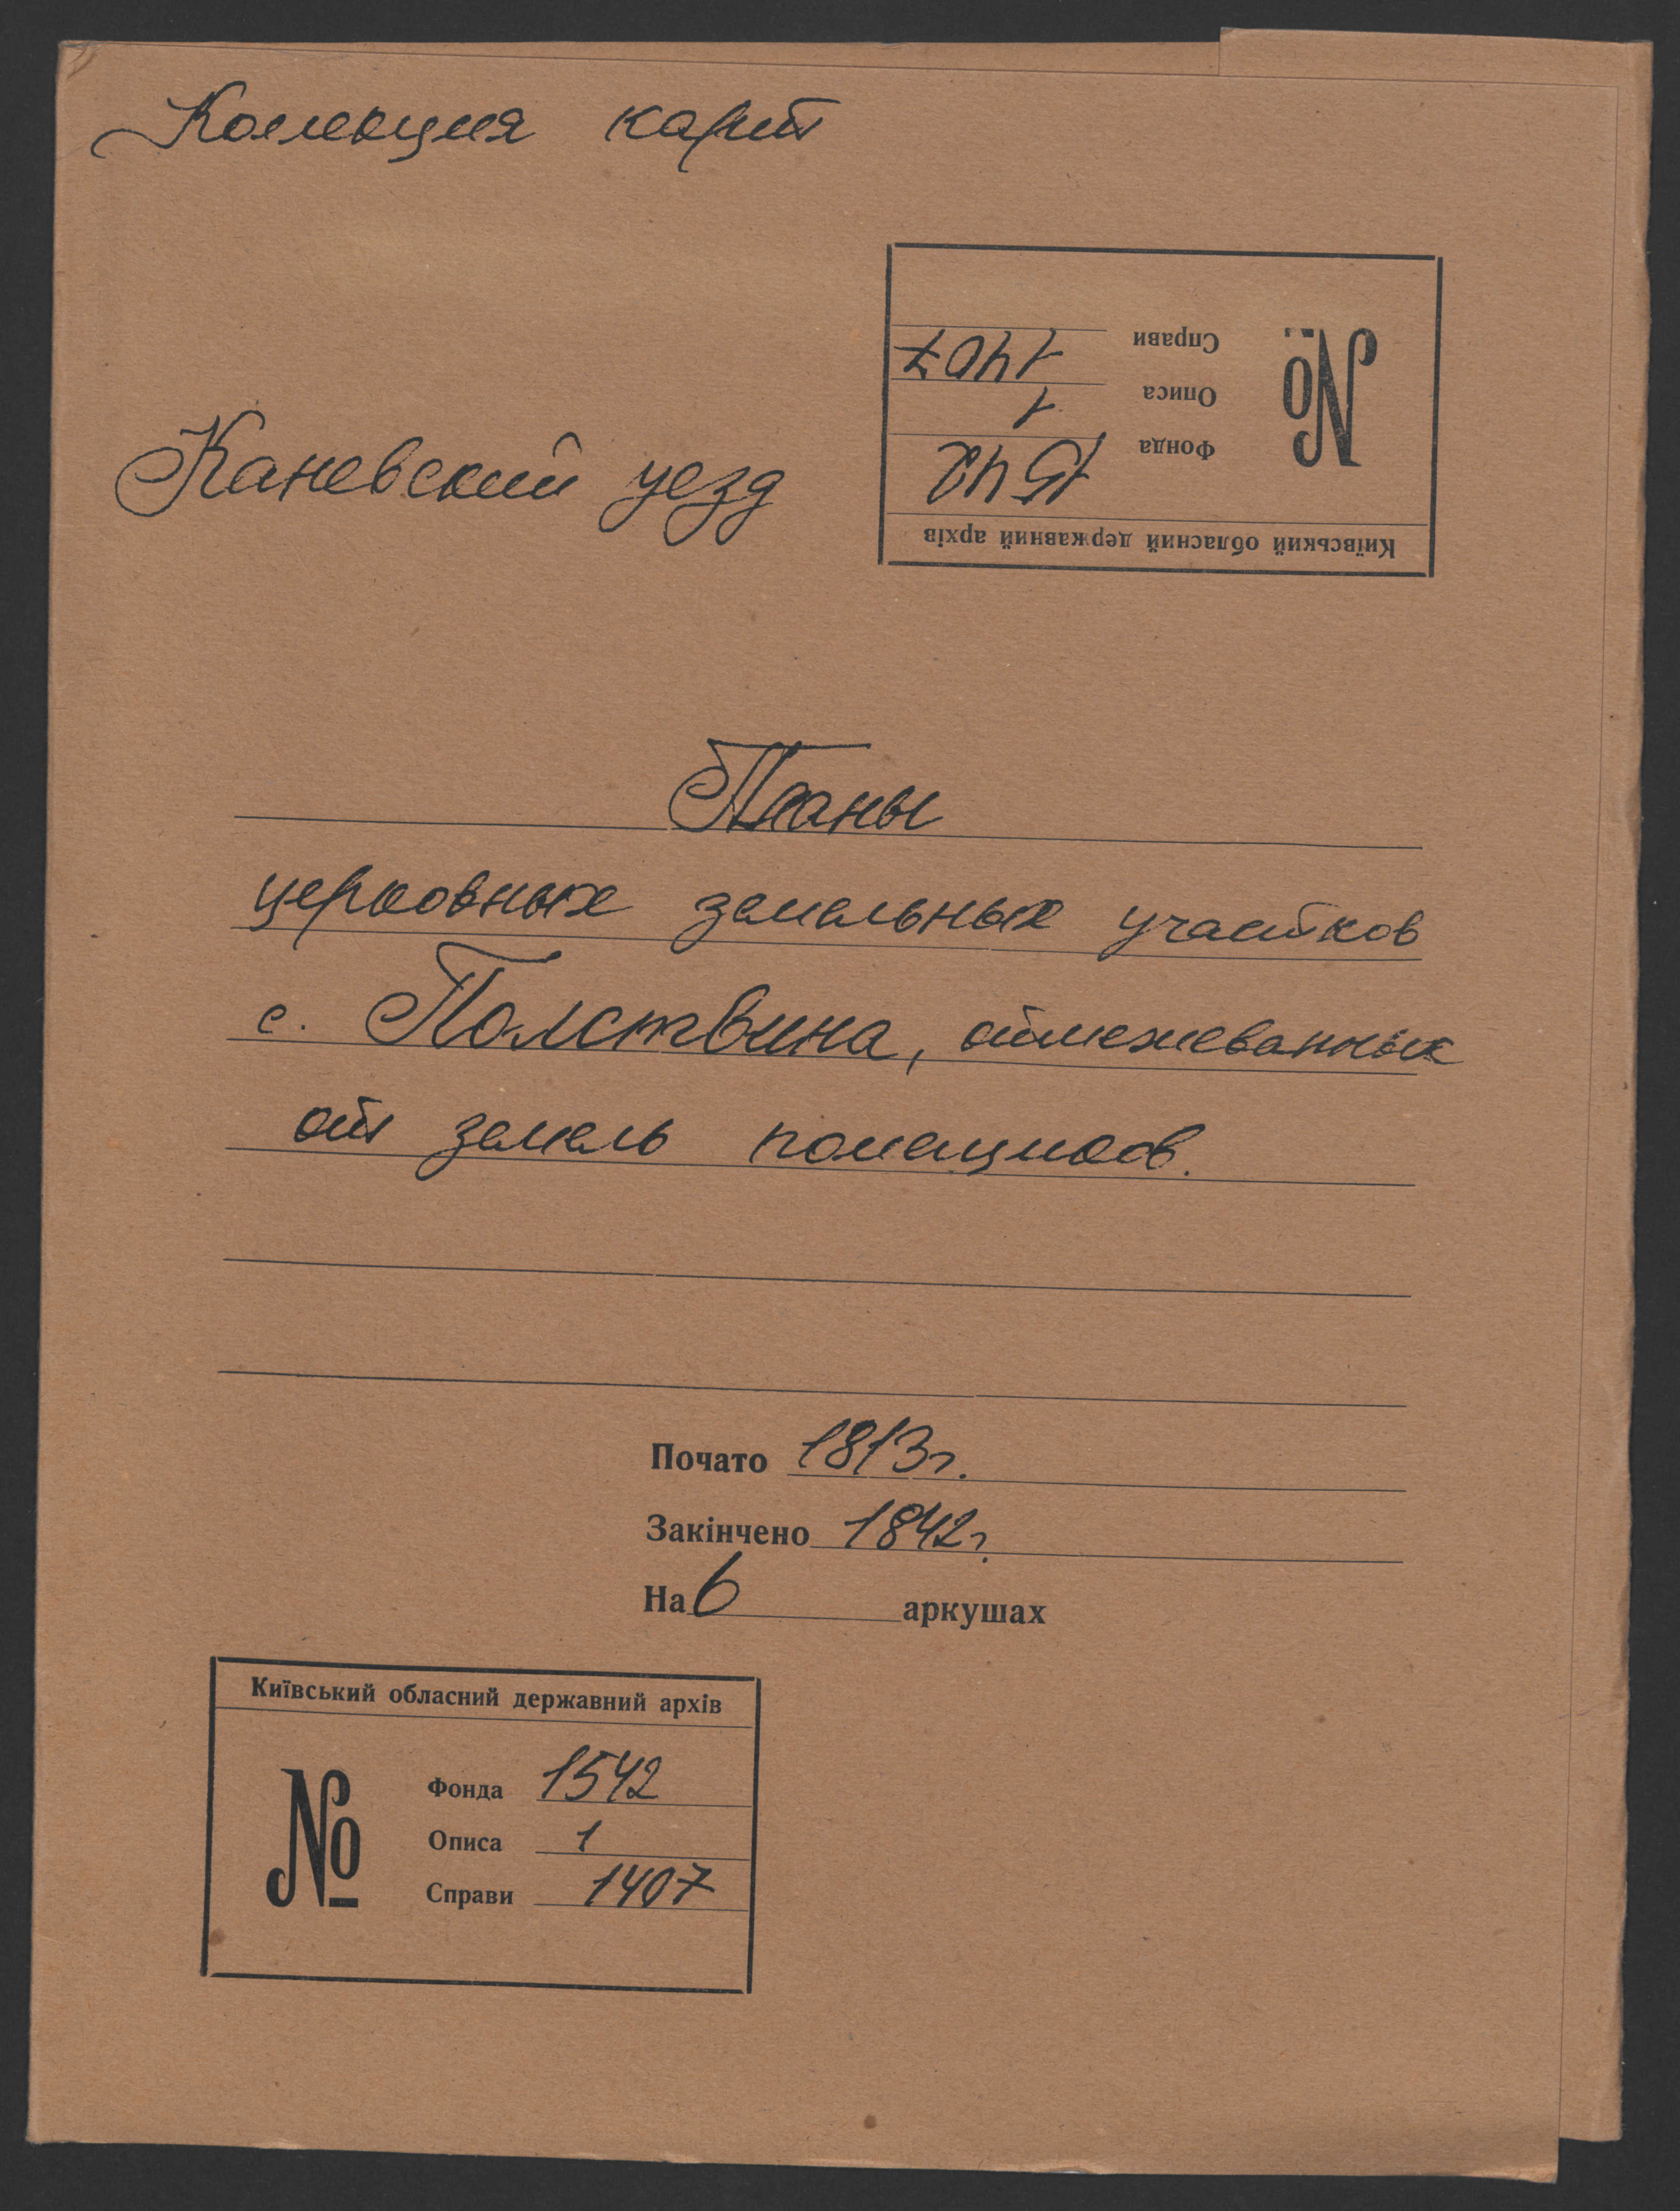 Коллекция карт
Справи 1407
Описа 1
Фонда 1542
№
Київський обласний державний архів
Каневский уезд
Планы
церковных земельных участков
с. Полствина, отмежеванных
от земель помещиков.
Почато 1813г.
Закінчено 1842г.
На 6 аркушах
Київський обласний державний архів
№
Фонда 1542
Описа 1
Справи 1407